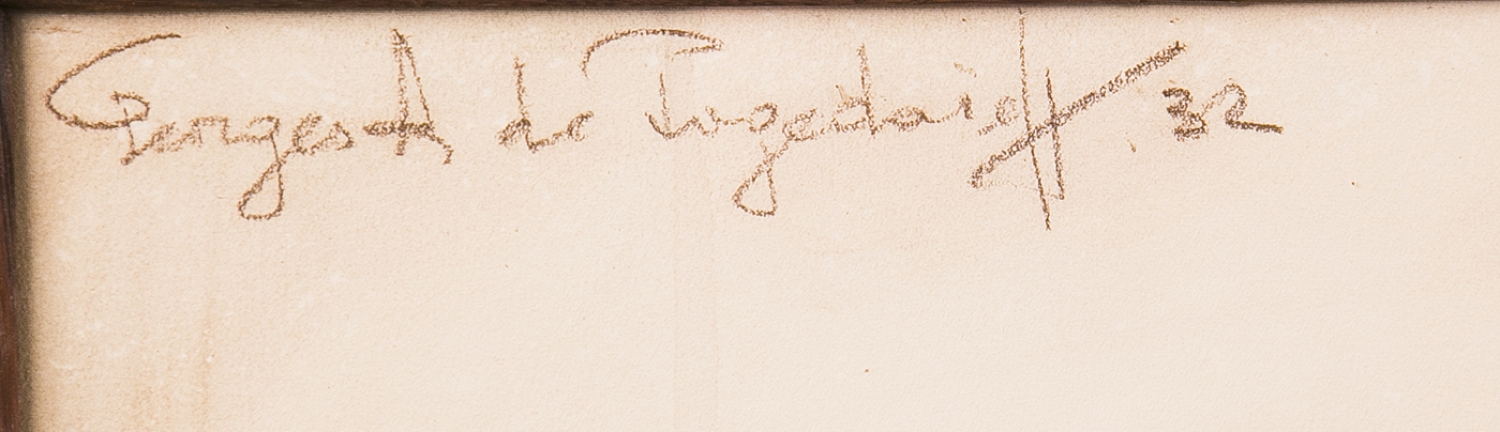 Georges A de Pogedaieff 32